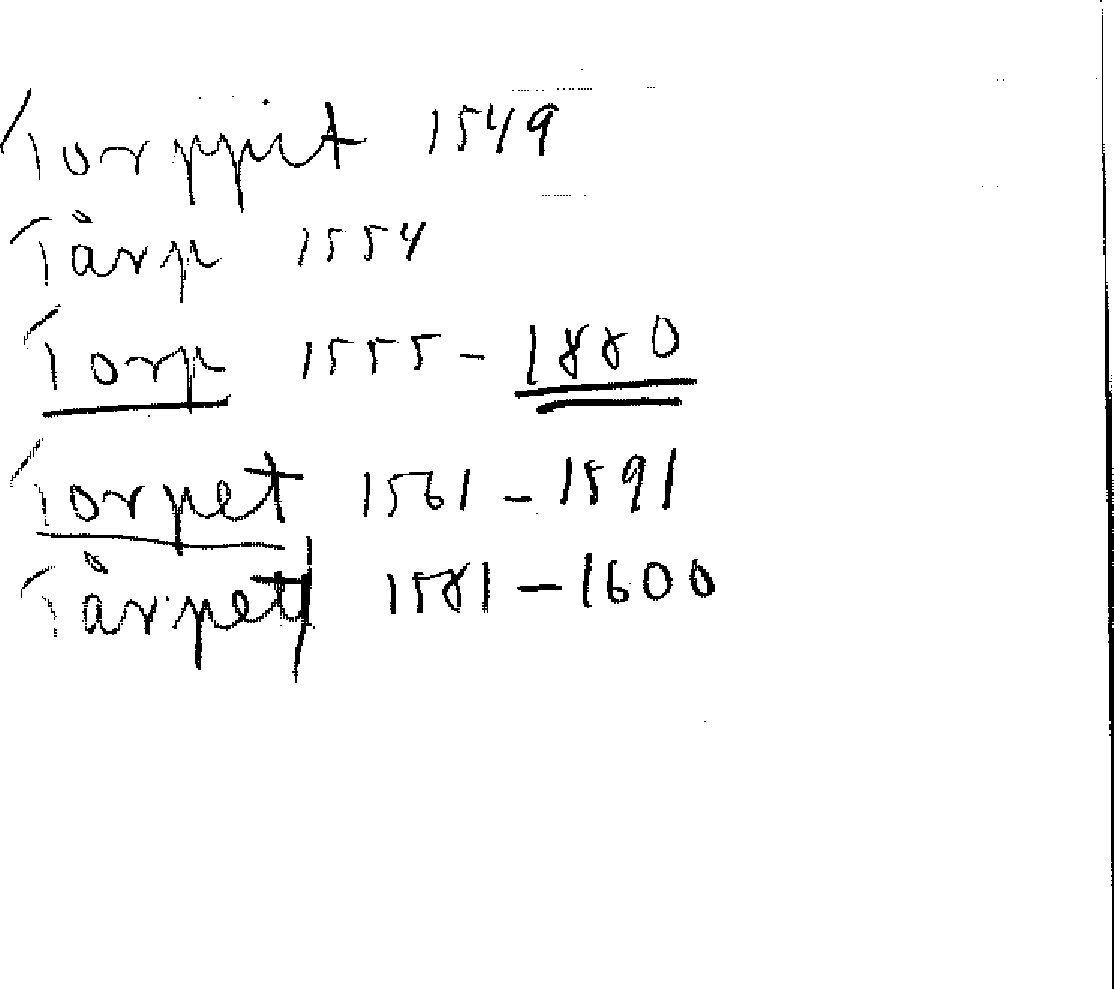 Torppit 1549
Tårp 1554
Torp 1555 - 1880
Torpet 1561 - 1591
Tårpet 1581 - 1600